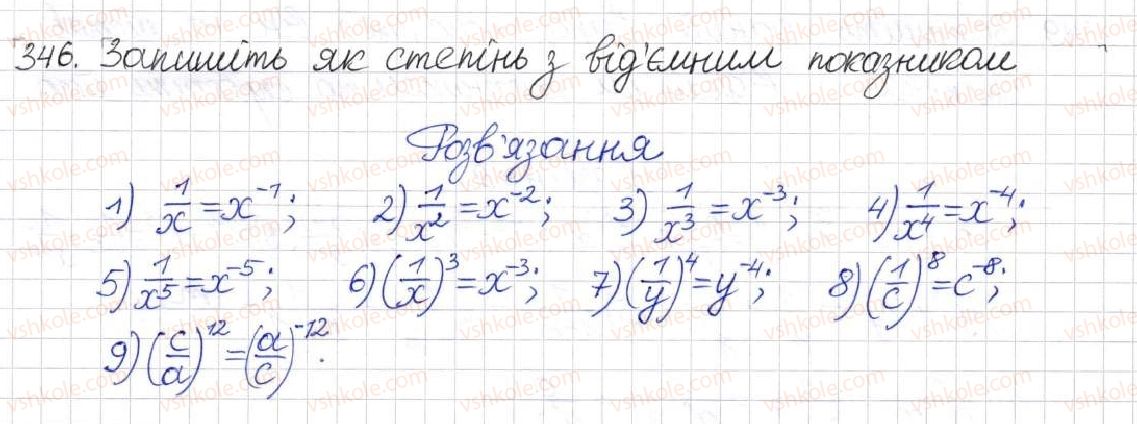 346. Запишіть як степінь з від'ємним показником
Розв'язання
1) 1/x = x^-1; 2) 1/x^2 = x^-2; 3) 1/x^3 = x^-3; 4) 1/x^4 = x^-4;
5) 1/x^5 = x^-5; 6) (1/x)^3 = x^-3; 7) (1/y)^4 = y^-4; 8) (1/c)^8 = c^-8;
9) (c/a)^12 = (a/c)^-12.